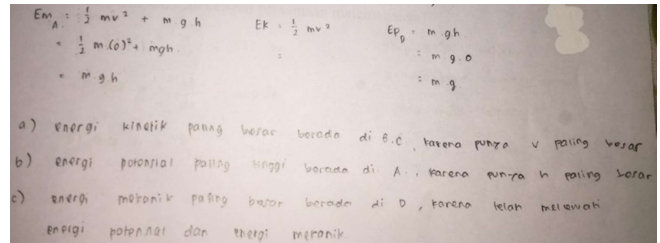 Em_A = 1/2 mv² + m.g.h Ek = 1/2 mv² Ep_D = m.gh
= 1/2 m.(0)² + mgh. = = m.g.0
= m.gh = m.g
a) energi kinetik paling besar berada di B.C, karena punya v paling besar
b) energi potensial paling tinggi berada di A., karena punya h paling besar
c) energi mekanik paling besar berada di D, karena telah melewati
energi potensial dan energi mekanik